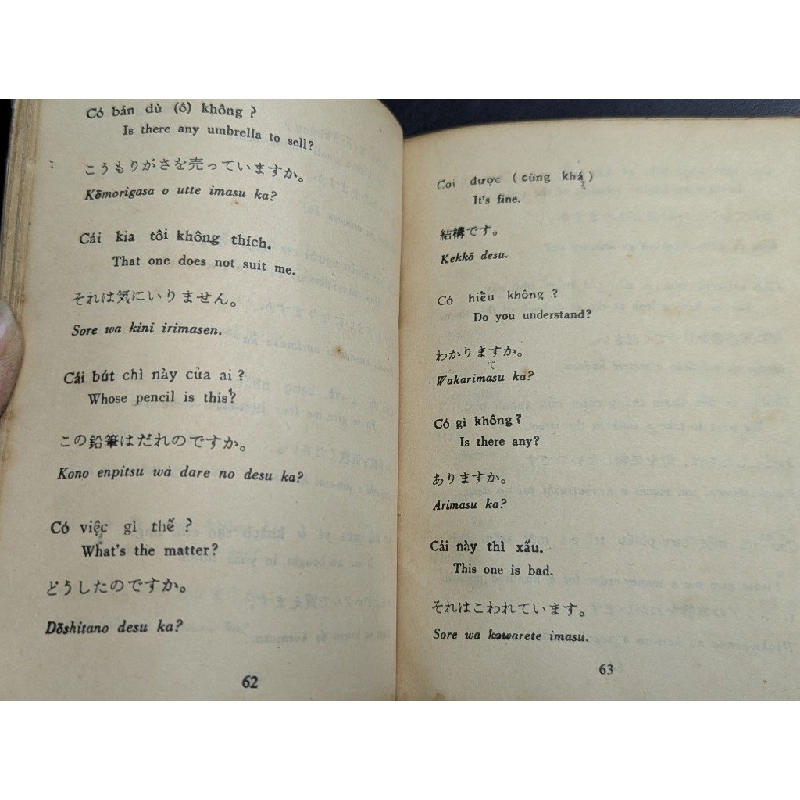 Có bán dù (ô) không ?
Is there any umbrella to sell?
こうもりがさを売っていますか。
Kōmorigasa o utte imasu ka?
Cái kia tôi không thích.
That one does not suit me.
それは気にいりません。
Sore wa kini irimasen.
Cái bút chì này của ai ?
Whose pencil is this?
この鉛筆はだれのですか。
Kono enpitsu wa dare no desu ka?
Có việc gì thế ?
What's the matter?
どうしたのですか。
Dōshitano desu ka?
62
Coi được ( cũng khá )
It's fine.
結構です。
Kekkō desu.
Có hiểu không ?
Do you understand?
わかりますか。
Wakarimasu ka?
Có gì không ?
Is there any?
ありますか。
Arimasu ka?
Cái này thì xấu.
This one is bad.
それはこわれています。
Sore wa kowarete imasu.
63